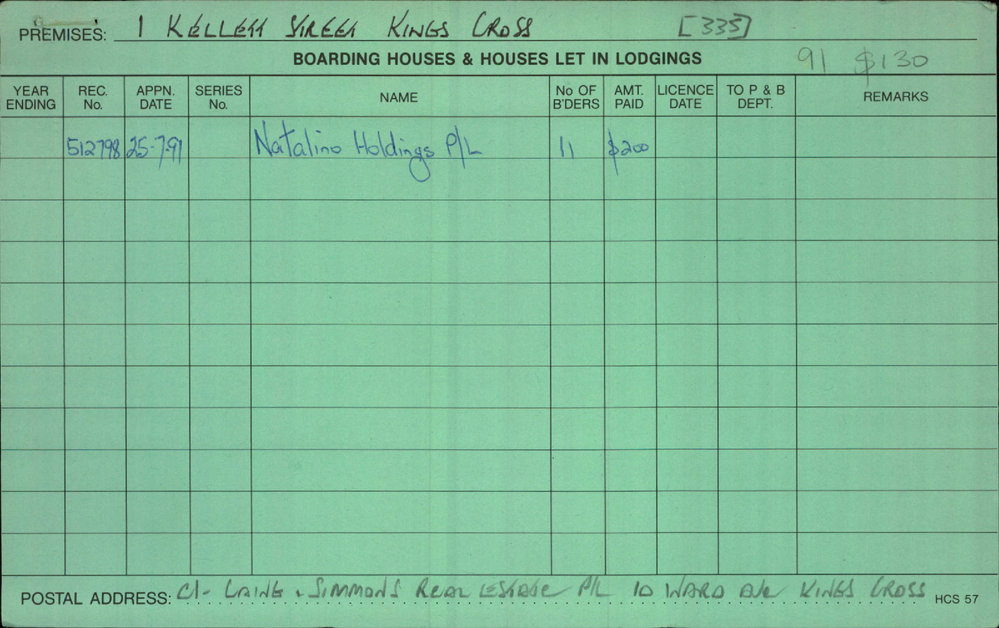 PREMISES: 1 KELLETT STREET KINGS CROSS [335]
BOARDING HOUSES & HOUSES LET IN LODGINGS 91 $130
YEAR ENDING REC. No. APPN. DATE SERIES No. NAME No OF B'DERS AMT. PAID LICENCE DATE TO P & B DEPT. REMARKS
512798 25-7-91 Natalino Holdings P/L 11 $200
POSTAL ADDRESS: C/- LAING & SIMMONS REAL ESTATE P/L 10 WARD AVE KINGS CROSS HCS 57